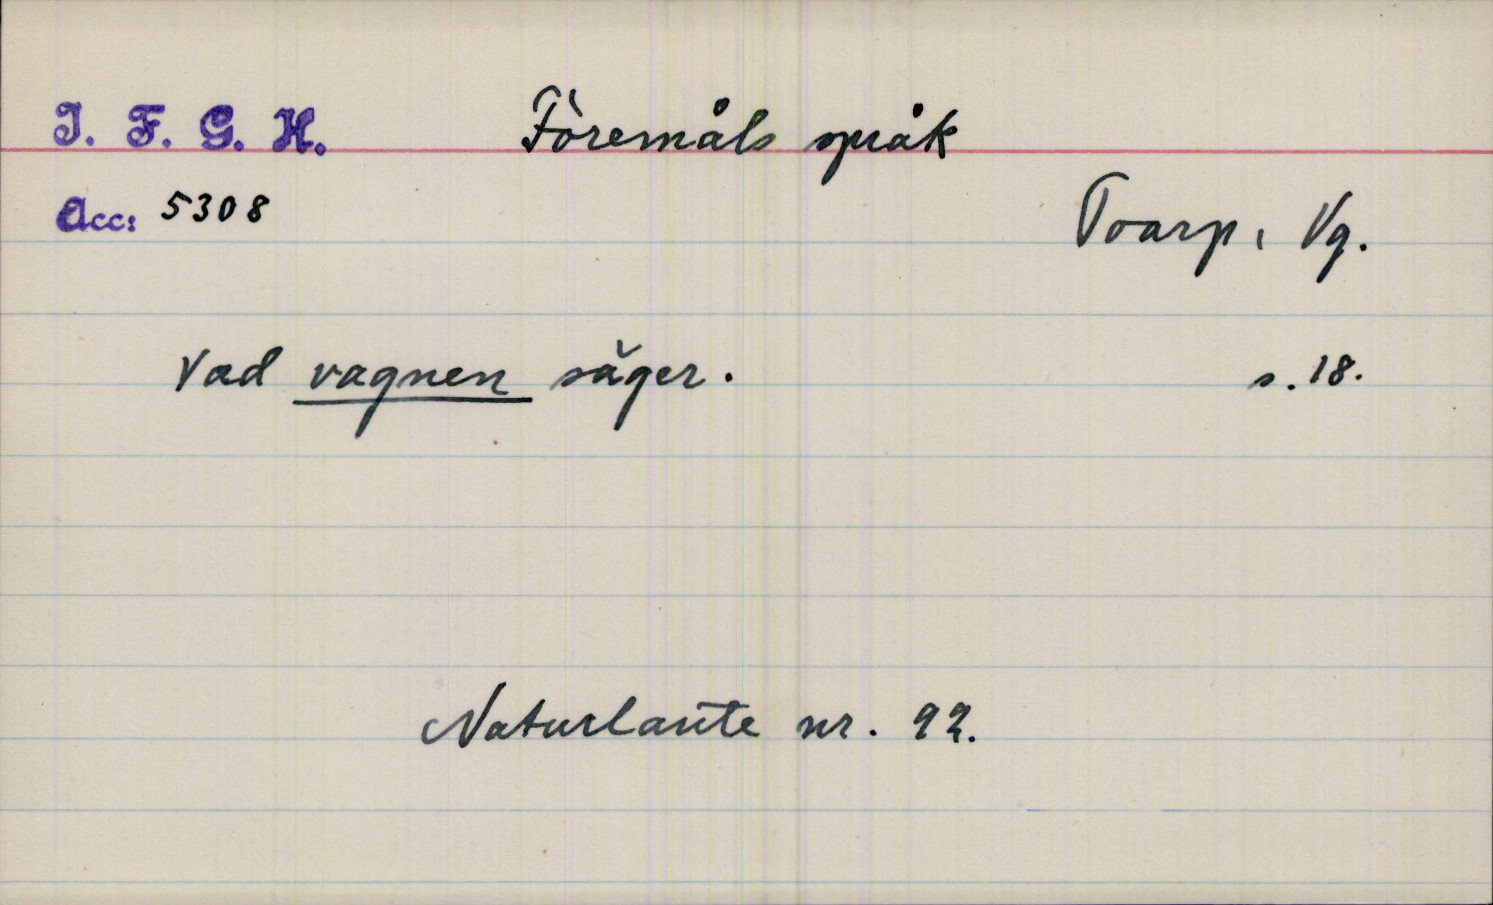 I. F. G. H. Föremåls språk
Acc: 5308
Toarp, Vg.
Vad vagnen säger. s. 18.
Naturlaute nr. 92.